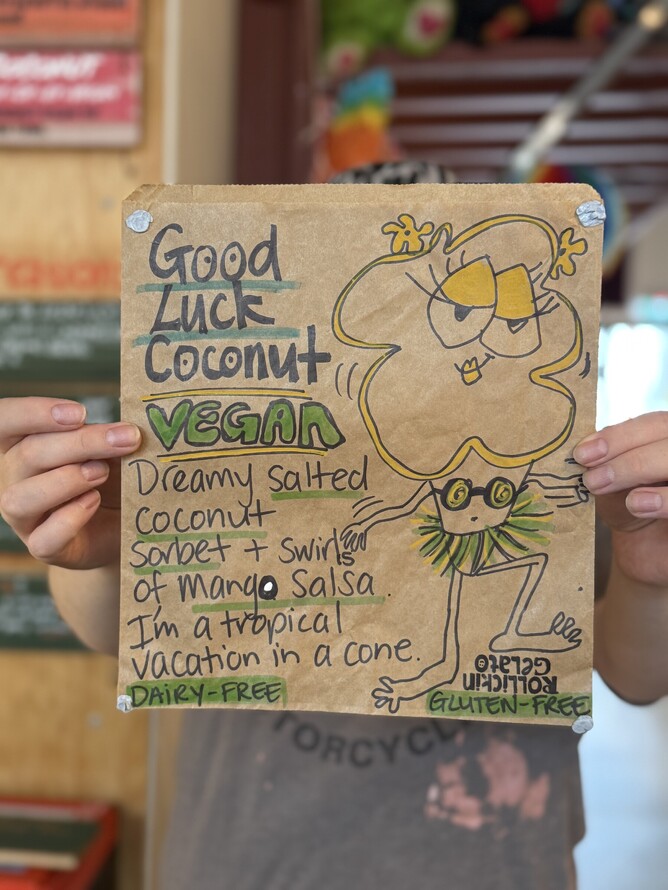 Good
Luck
Coconut
VEGAN
Dreamy salted
coconut
sorbet + swirls
of mango salsa.
I'm a tropical
vacation in a cone.
DAIRY-FREE
ROLLICKIN
GELATO
GLUTEN-FREE
TORCYCL